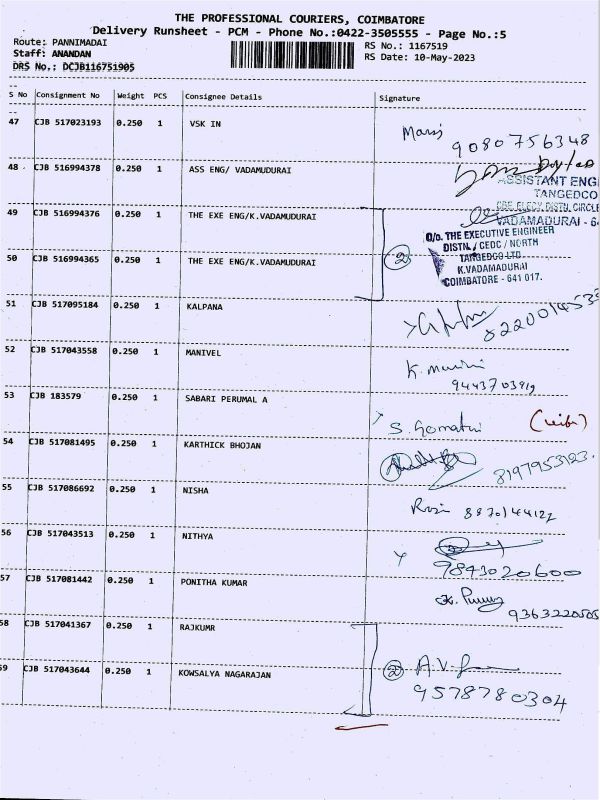 THE PROFESSIONAL COURIERS, COIMBATORE
Delivery Runsheet - PCM - Phone No.:0422-3505555 - Page No.:5
Route: PANNIMADAI RS No.: 1167519
Staff: ANANDAN RS Date: 10-May-2023
DRS No.: DCJB116751905
S No Consignment No Weight PCS Consignee Details Signature
47 CJB 517023193 0.250 1 VSK IN
9080756348
48 CJB 516994378 0.250 1 ASS ENG/ VADAMUDURAI
ASSISTANT ENG
TANGEDCO
CBE.ELECY.DISTN. CIRCLE
VADAMADURAI - 6
49 CJB 516994376 0.250 1 THE EXE ENG/K.VADAMUDURAI
O/o. THE EXECUTIVE ENGINEER
DISTN. / CEDC / NORTH
TANGEDCO LTD
50 CJB 516994365 0.250 1 THE EXE ENG/K.VADAMUDURAI 2
K.VADAMADURAI
COIMBATORE - 641 017.
51 CJB 517095184 0.250 1 KALPANA
822001453
52 CJB 517043558 0.250 1 MANIVEL
9443703919
53 CJB 183579 0.250 1 SABARI PERUMAL A
S. Gomathi
54 CJB 517081495 0.250 1 KARTHICK BHOJAN
8197953123.
55 CJB 517086692 0.250 1 NISHA
8870144122
56 CJB 517043513 0.250 1 NITHYA
9843020600
57 CJB 517081442 0.250 1 PONITHA KUMAR
9363220505
58 CJB 517041367 0.250 1 RAJKUMR
59 CJB 517043644 0.250 1 KOWSALYA NAGARAJAN 2
9578780304